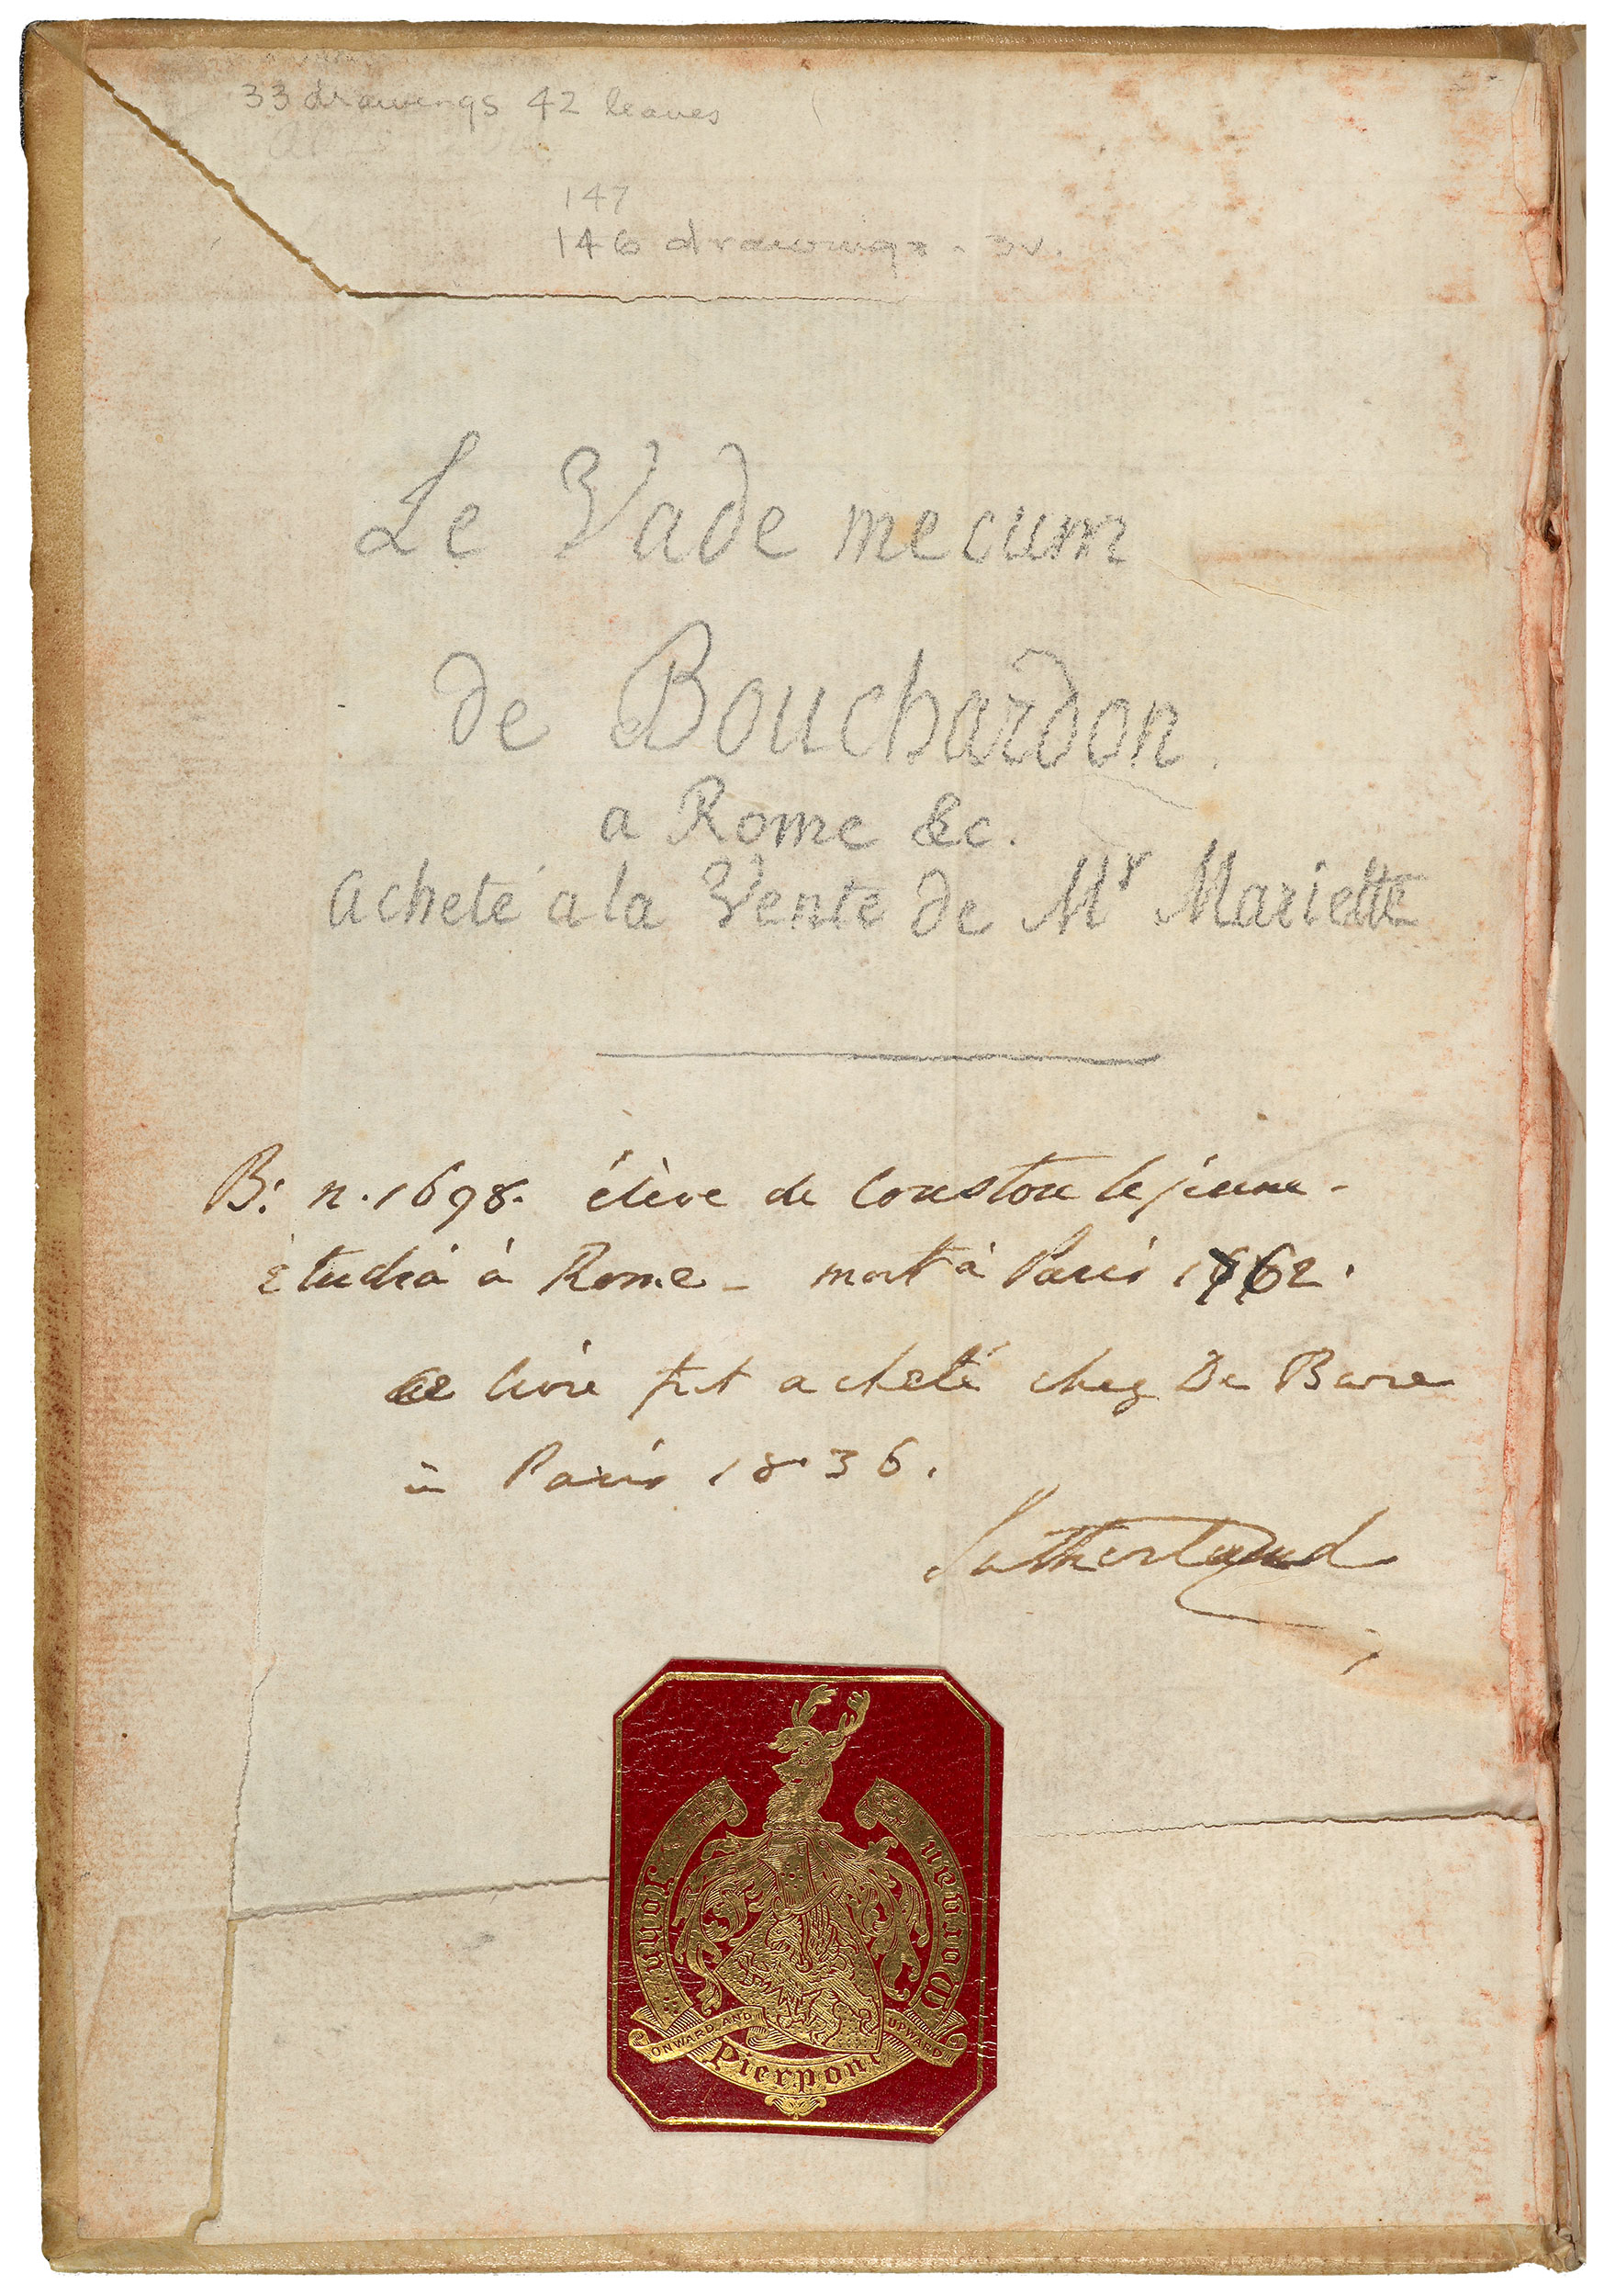 33 drawings 42 leaves
147
146 drawings - 3v.
Le Vade mecum
de Bouchardon.
a Rome &c.
acheté a la Vente de Mr Mariette
B: n. 1698. élève de Coustou le jeune -
étudia à Rome - mort à Paris 1762.
ce livre fut acheté chez De Bure
à Paris 1836.
Sutherland
John
Pierpont
Morgan
ONWARD AND UPWARD